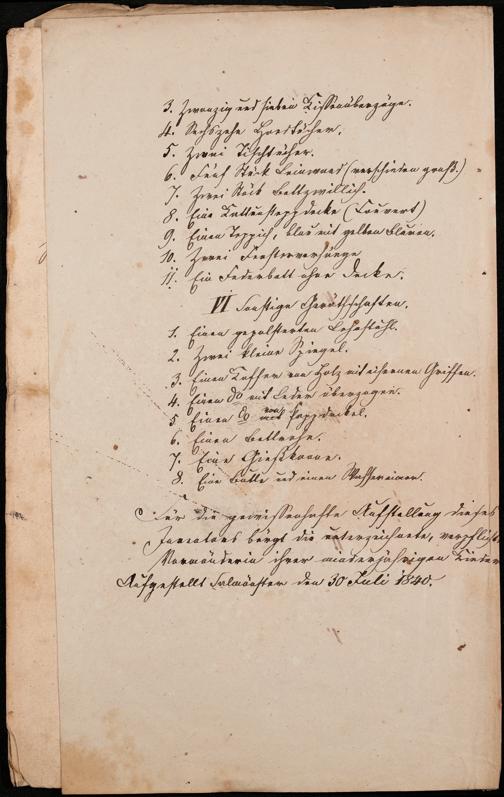 3. Zwanzig und sieben Kissenüberzüge.
4. Sechszehn Handtücher.
5. Zwei Tischtücher.
6. Fünf Stück Leinwand (verschieden groß.)
7. Zwei Stück Bettzwillich.
8. Eine Kattunsteppdecke (Couvert)
9. Einen Teppich, blau mit gelben Blumen.
10. Zwei Fenstervorhänge
11. Ein Federbett ohne Decke.
VI Sonstige Geräthschaften.
1. Einen gepolsterten Lehnstuhl.
2. Zwei kleine Spiegel.
3. Einen Koffer von Holz mit eisernen Griffen.
4. Einen do mit Leder überzogen.
5 Einen do von Pappdeckel.
6. Einen
7. Eine Gießkanne.
8. Eine Bütte und einen Wassereimer.
Für die gewissenhafte Aufstellung dieses
Inventars bürgt die unterzeichnete, verpflich
Vormünderin ihrer minderjährigen Kinder
Aufgestellt Salmünster den 30 Juli 1840.